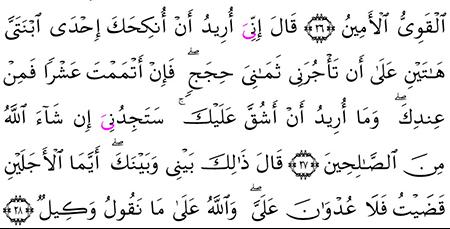 ٱلۡقَوِيُّ ٱلۡأَمِينُ ۝٢٦ قَالَ إِنِّيَ أُرِيدُ أَنۡ أُنكِحَكَ إِحۡدَى ٱبۡنَتَيَّ
هَٰتَيۡنِ عَلَىٰٓ أَن تَأۡجُرَنِي ثَمَٰنِيَ حِجَجٖۖ فَإِنۡ أَتۡمَمۡتَ عَشۡرٗا فَمِنۡ
عِندِكَۖ وَمَآ أُرِيدُ أَنۡ أَشُقَّ عَلَيۡكَۚ سَتَجِدُنِيَ إِن شَآءَ ٱللَّهُ
مِنَ ٱلصَّٰلِحِينَ ۝٢٧ قَالَ ذَٰلِكَ بَيۡنِي وَبَيۡنَكَۖ أَيَّمَا ٱلۡأَجَلَيۡنِ
قَضَيۡتُ فَلَا عُدۡوَٰنَ عَلَيَّۖ وَٱللَّهُ عَلَىٰ مَا نَقُولُ وَكِيلٞ ۝٢٨